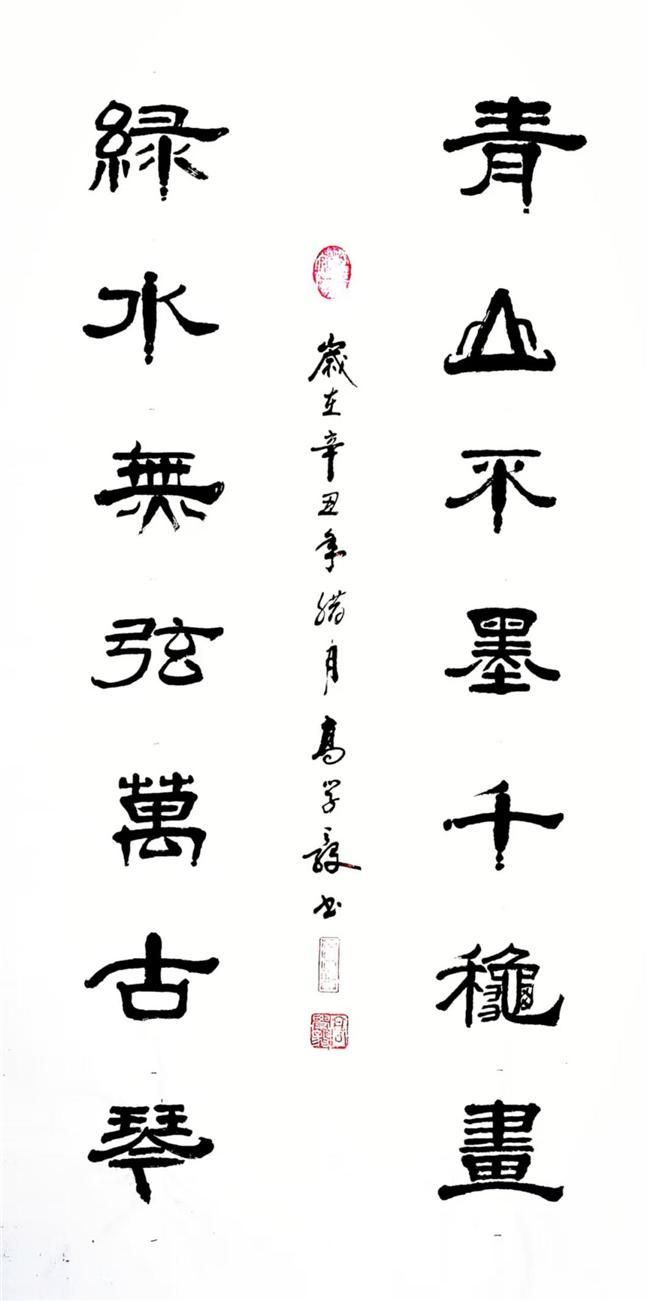 青山不墨千龝畫
緑水無弦萬古琴
歲在辛丑年腊月高学毅书